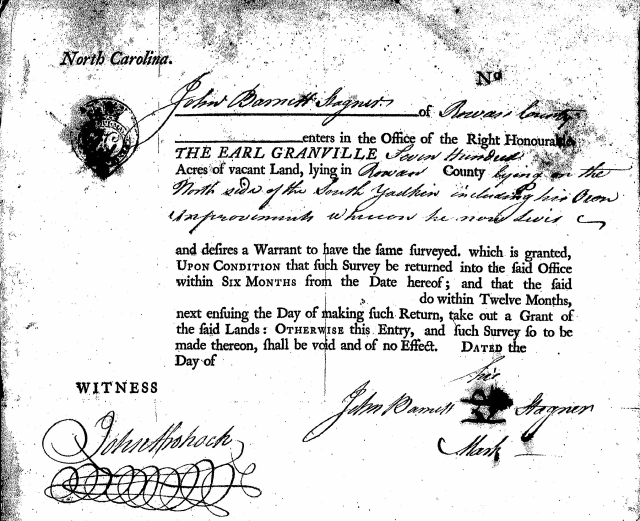 North Carolina.
No
John Barnett Stagner of Rowan County
enters in the Office of the Right Honourable
THE EARL GRANVILLE Seven Hundred
Acres of vacant Land, lying in Rowan County lying on the
North side of the South Yadkin including his Own
Improvements whereon he now lives
and desires a Warrant to have the same surveyed. which is granted,
UPON CONDITION that such Survey be returned into the said Office
within SIX MONTHS from the Date hereof; and that the said
do within Twelve Months,
next ensuing the Day of making such Return, take out a Grant of
the said Lands: OTHERWISE this Entry, and such Survey so to be
made thereon, shall be void and of no Effect. DATED the
Day of
WITNESS
his
John Barnett Stagner
Mark